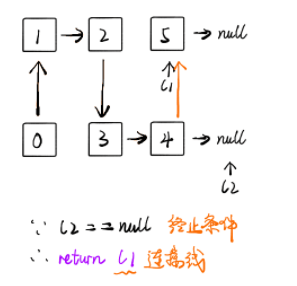 1 → 2 5 → null
l1
0 3 → 4 → null
l2
∵ l2 == null 终止条件
∴ return l1 连接线